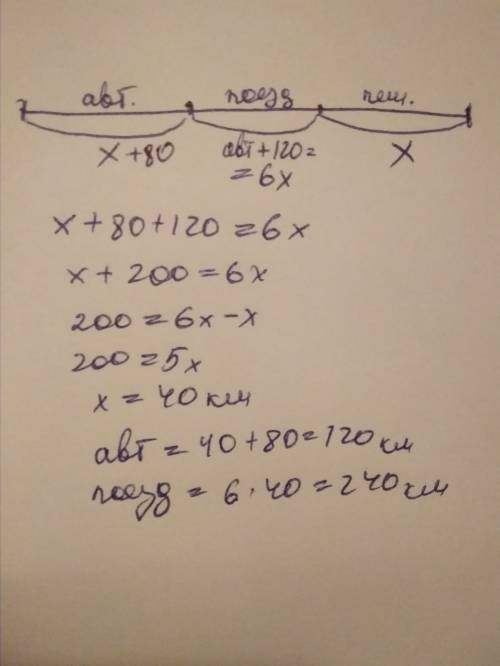 авт. поезд пеш.
x+80 авт+120= x
=6x
x+80+120=6x
x+200=6x
200=6x-x
200=5x
x=40км
авт=40+80=120км
поезд=6·40=240км